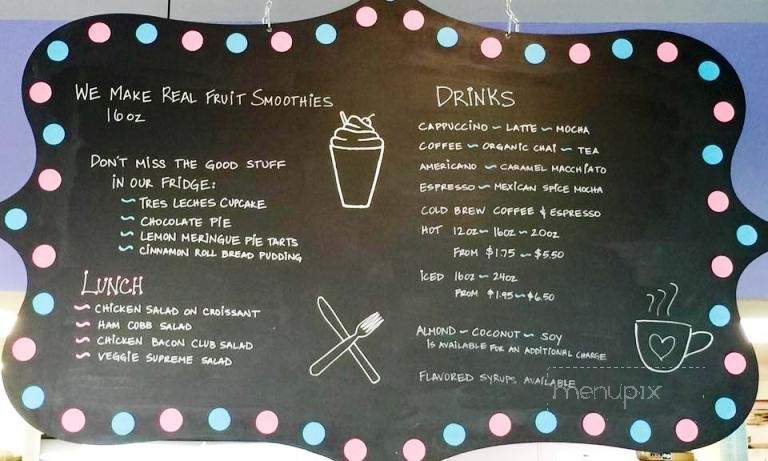 WE MAKE REAL FRUIT SMOOTHIES
16 OZ
DON'T MISS THE GOOD STUFF
IN OUR FRIDGE:
~ TRES LECHES CUPCAKE
~ CHOCOLATE PIE
~ LEMON MERINGUE PIE TARTS
~ CINNAMON ROLL BREAD PUDDING
LUNCH
~ CHICKEN SALAD ON CROISSANT
~ HAM COBB SALAD
~ CHICKEN BACON CLUB SALAD
~ VEGGIE SUPREME SALAD
DRINKS
CAPPUCCINO ~ LATTE ~ MOCHA
COFFEE ~ ORGANIC CHAI ~ TEA
AMERICANO ~ CARAMEL MACCHIATO
ESPRESSO ~ MEXICAN SPICE MOCHA
COLD BREW COFFEE & ESPRESSO
HOT 12OZ ~ 16OZ ~ 20OZ
FROM $1.75 ~ $5.50
ICED 16OZ ~ 24OZ
FROM $1.95 ~ $6.50
ALMOND ~ COCONUT ~ SOY
IS AVAILABLE FOR AN ADDITIONAL CHARGE
FLAVORED SYRUPS AVAILABLE
menupix